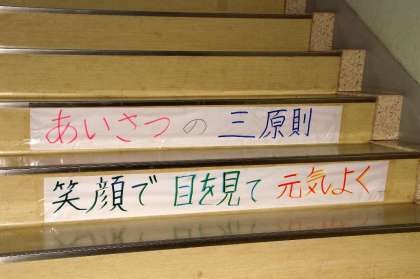 あいさつの三原則
笑顔で目を見て元気よく